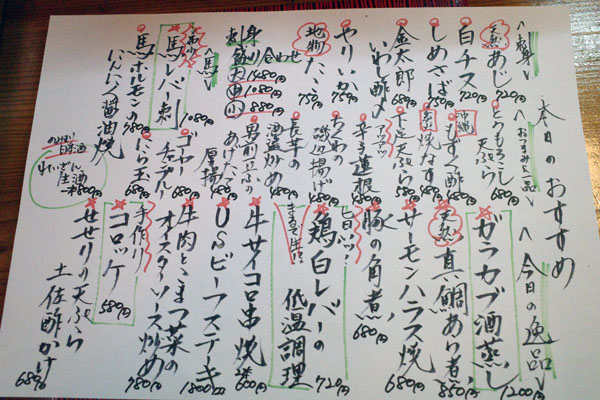 本日のおすすめ
〈刺身〉
天然 あじ 720円
白チス 720円
しめさば 750円
金太郎 680円
いわし酢〆
やりいか 750円
地物 たこ 750円
刺身盛り合わせ
大 1480円
中 1080円
小 880円
〈馬〉
馬レバ刺 1080円
馬ホルモンのにんにく醤油焼 980円
〈おつまみ&一品〉
とうもろこし天ぷら 680円
沖縄 もずく酢
焼なす
下足天ぷら
辛子蓮根
ちくわの磯辺揚げ
長芋の酒盗炒め 680円
男前豆腐の厚揚 680円
ゴーヤーチャンプルー 680円
にら玉 680円
〈今日の逸品〉
ガラカブ酒蒸し 1200円
天然 真鯛あら煮 850円
サーモンハラス焼 680円
豚の角煮 680円
鶏白レバーの低温調理 720円
牛サイコロ串焼 2本 600円
USビーフステーキ 1800円
牛肉とこまつ菜のオイスターソース炒め 980円
手作り コロッケ 580円
せせりの天ぷら 土佐酢がけ 680円